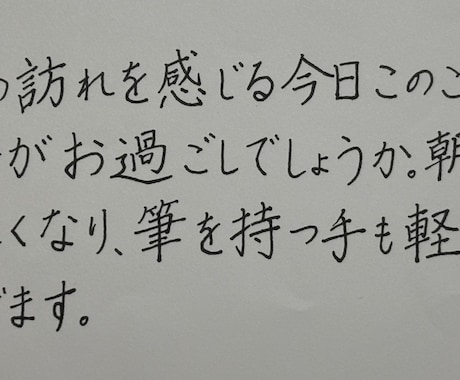 の訪れを感じる今日このこ
がお過ごしでしょうか。朝
くなり、筆を持つ手も軽
ます。